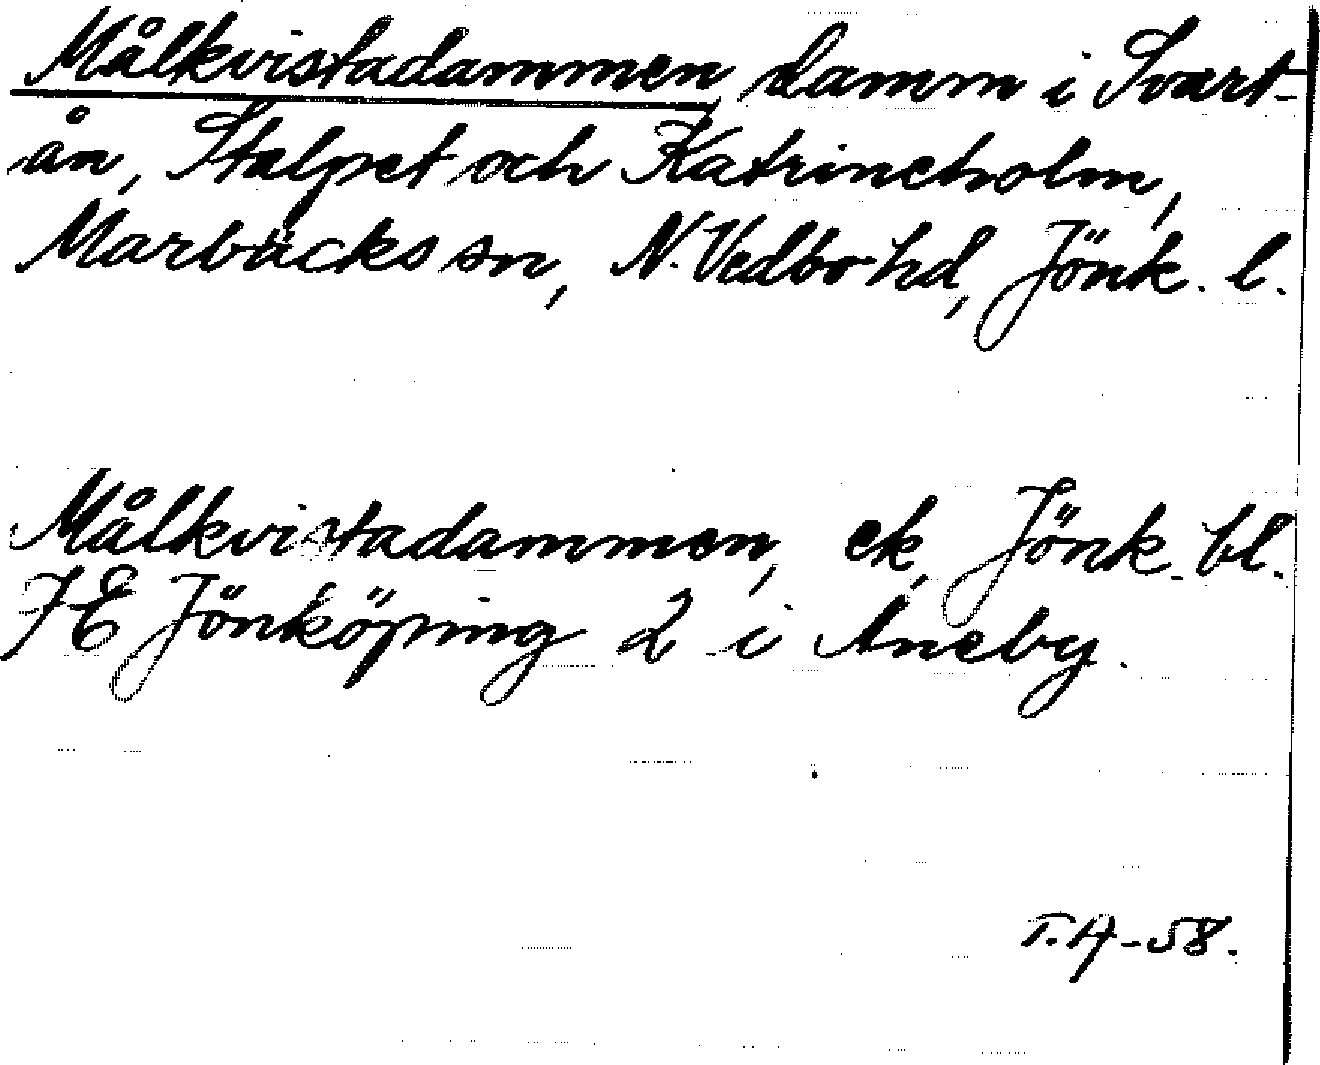 Målkvistadammen, damm i Svart-
ån, Stalpet och Katrineholm,
Marbäcks sn, N. Vedbo hd, Jönk. l.
Målkvistadammen, ek, Jönk. bl.
7 E Jönköping 2 i Aneby.
T.A-58.